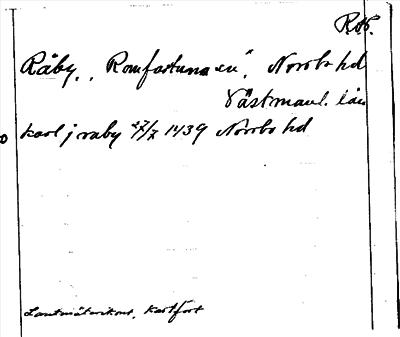 Råby, Romfartuna sn, Norrbo hd
Västmanl. län
karl j raby 27/7 1439 Norrbo hd
Lantmäterikont, kartfört